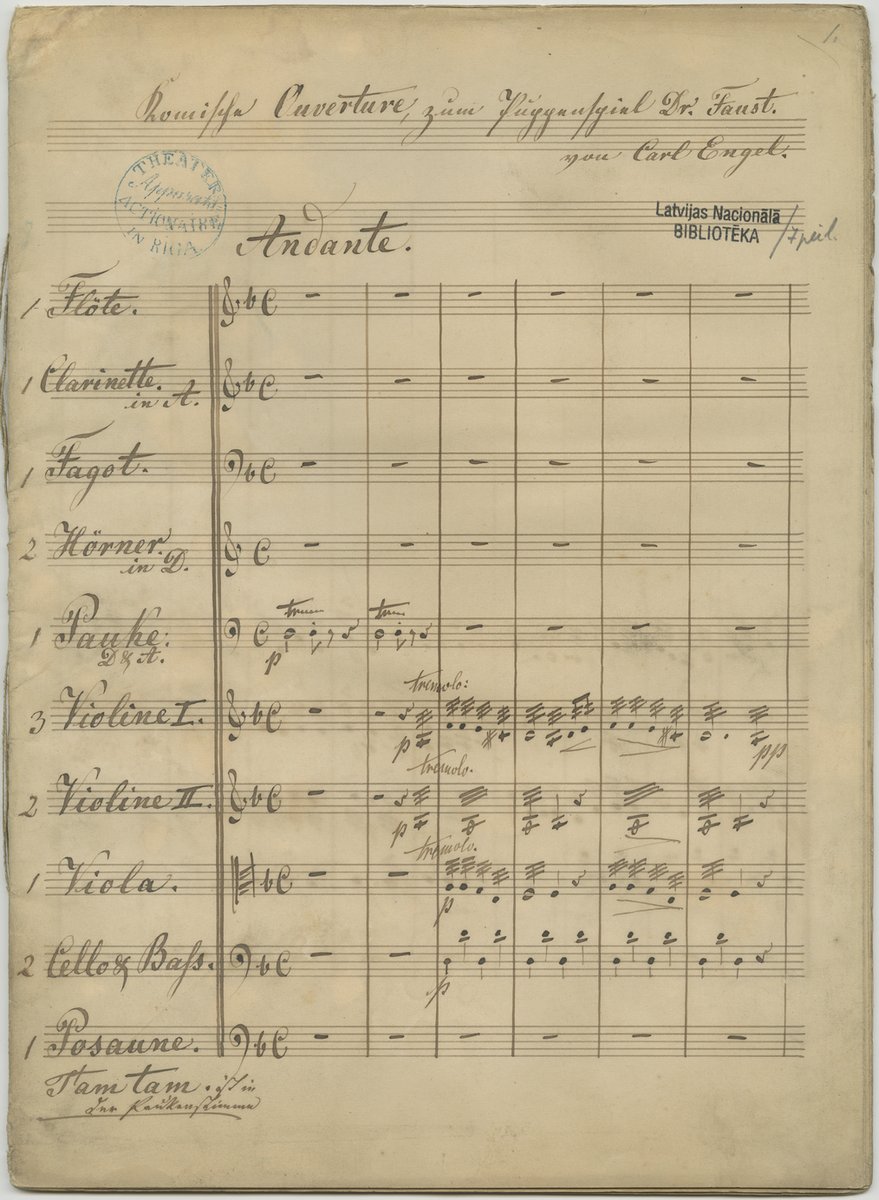 1.
Komische Ouverture, zum Puppenspiel Dr. Faust.
von Carl Engel.
THEATER
ACTIONAIRE
IN RIGA
Latvijas Nacionālā
BIBLIOTĒKA
Andante.
1 Flöte.
1 Clarinette.
in A.
1 Fagot.
2 Hörner.
in D.
1 Pauke.
D & A.
p
3 Violine I.
tremolo:
p
pp
2 Violine II.
tremolo.
p
1 Viola.
tremolo.
p
2 Cello & Baſs.
p
1 Posaune.
Tam tam. ist in
der Paukenstimme